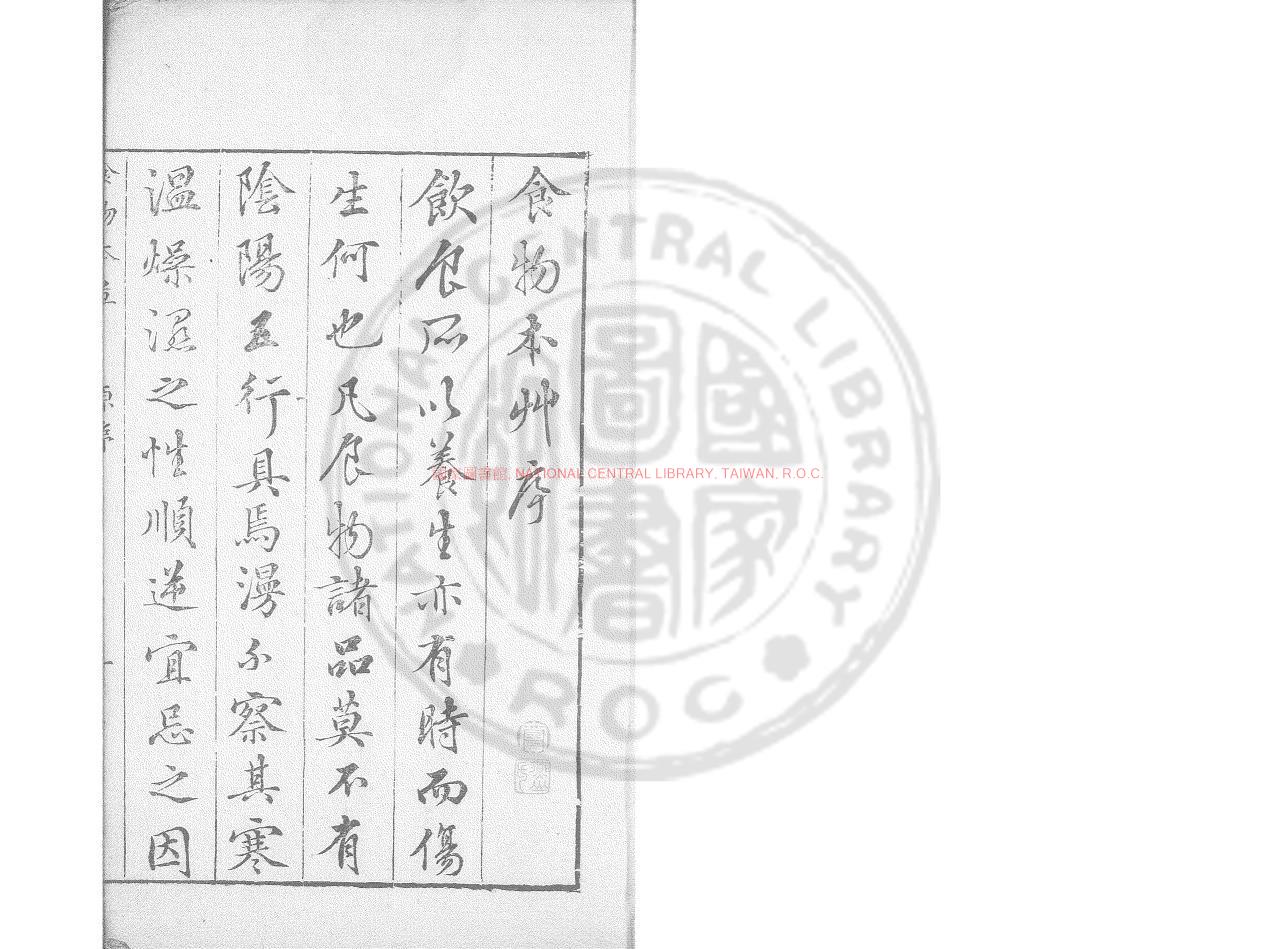 食物本艸序
飲食所以養生亦有時而傷
生何也凡食物諸品莫不有
陰陽五行具焉漫不察其寒
溫燥濕之性順逆宜忌之因
國家圖書館, NATIONAL CENTRAL LIBRARY, TAIWAN, R.O.C.
NATIONAL CENTRAL LIBRARY
ROC
國家圖書